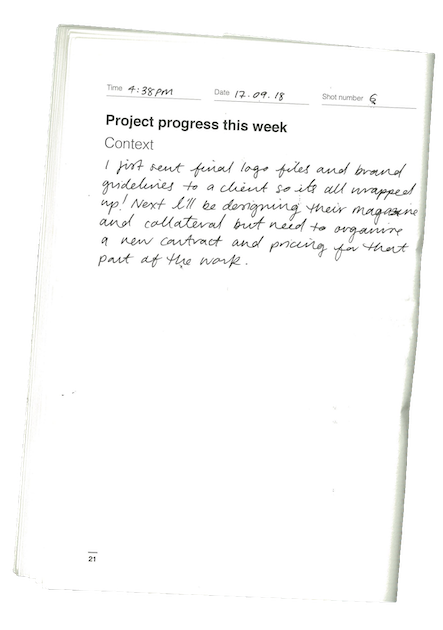 Time 4:38pm Date 17.09.18 Shot number 6
Project progress this week
Context
I just sent final logo files and brand
guidelines to a client so its all wrapped
up! Next I'll be designing their magazine
and collateral but need to organise
a new contract and pricing for that
part of the work.
21